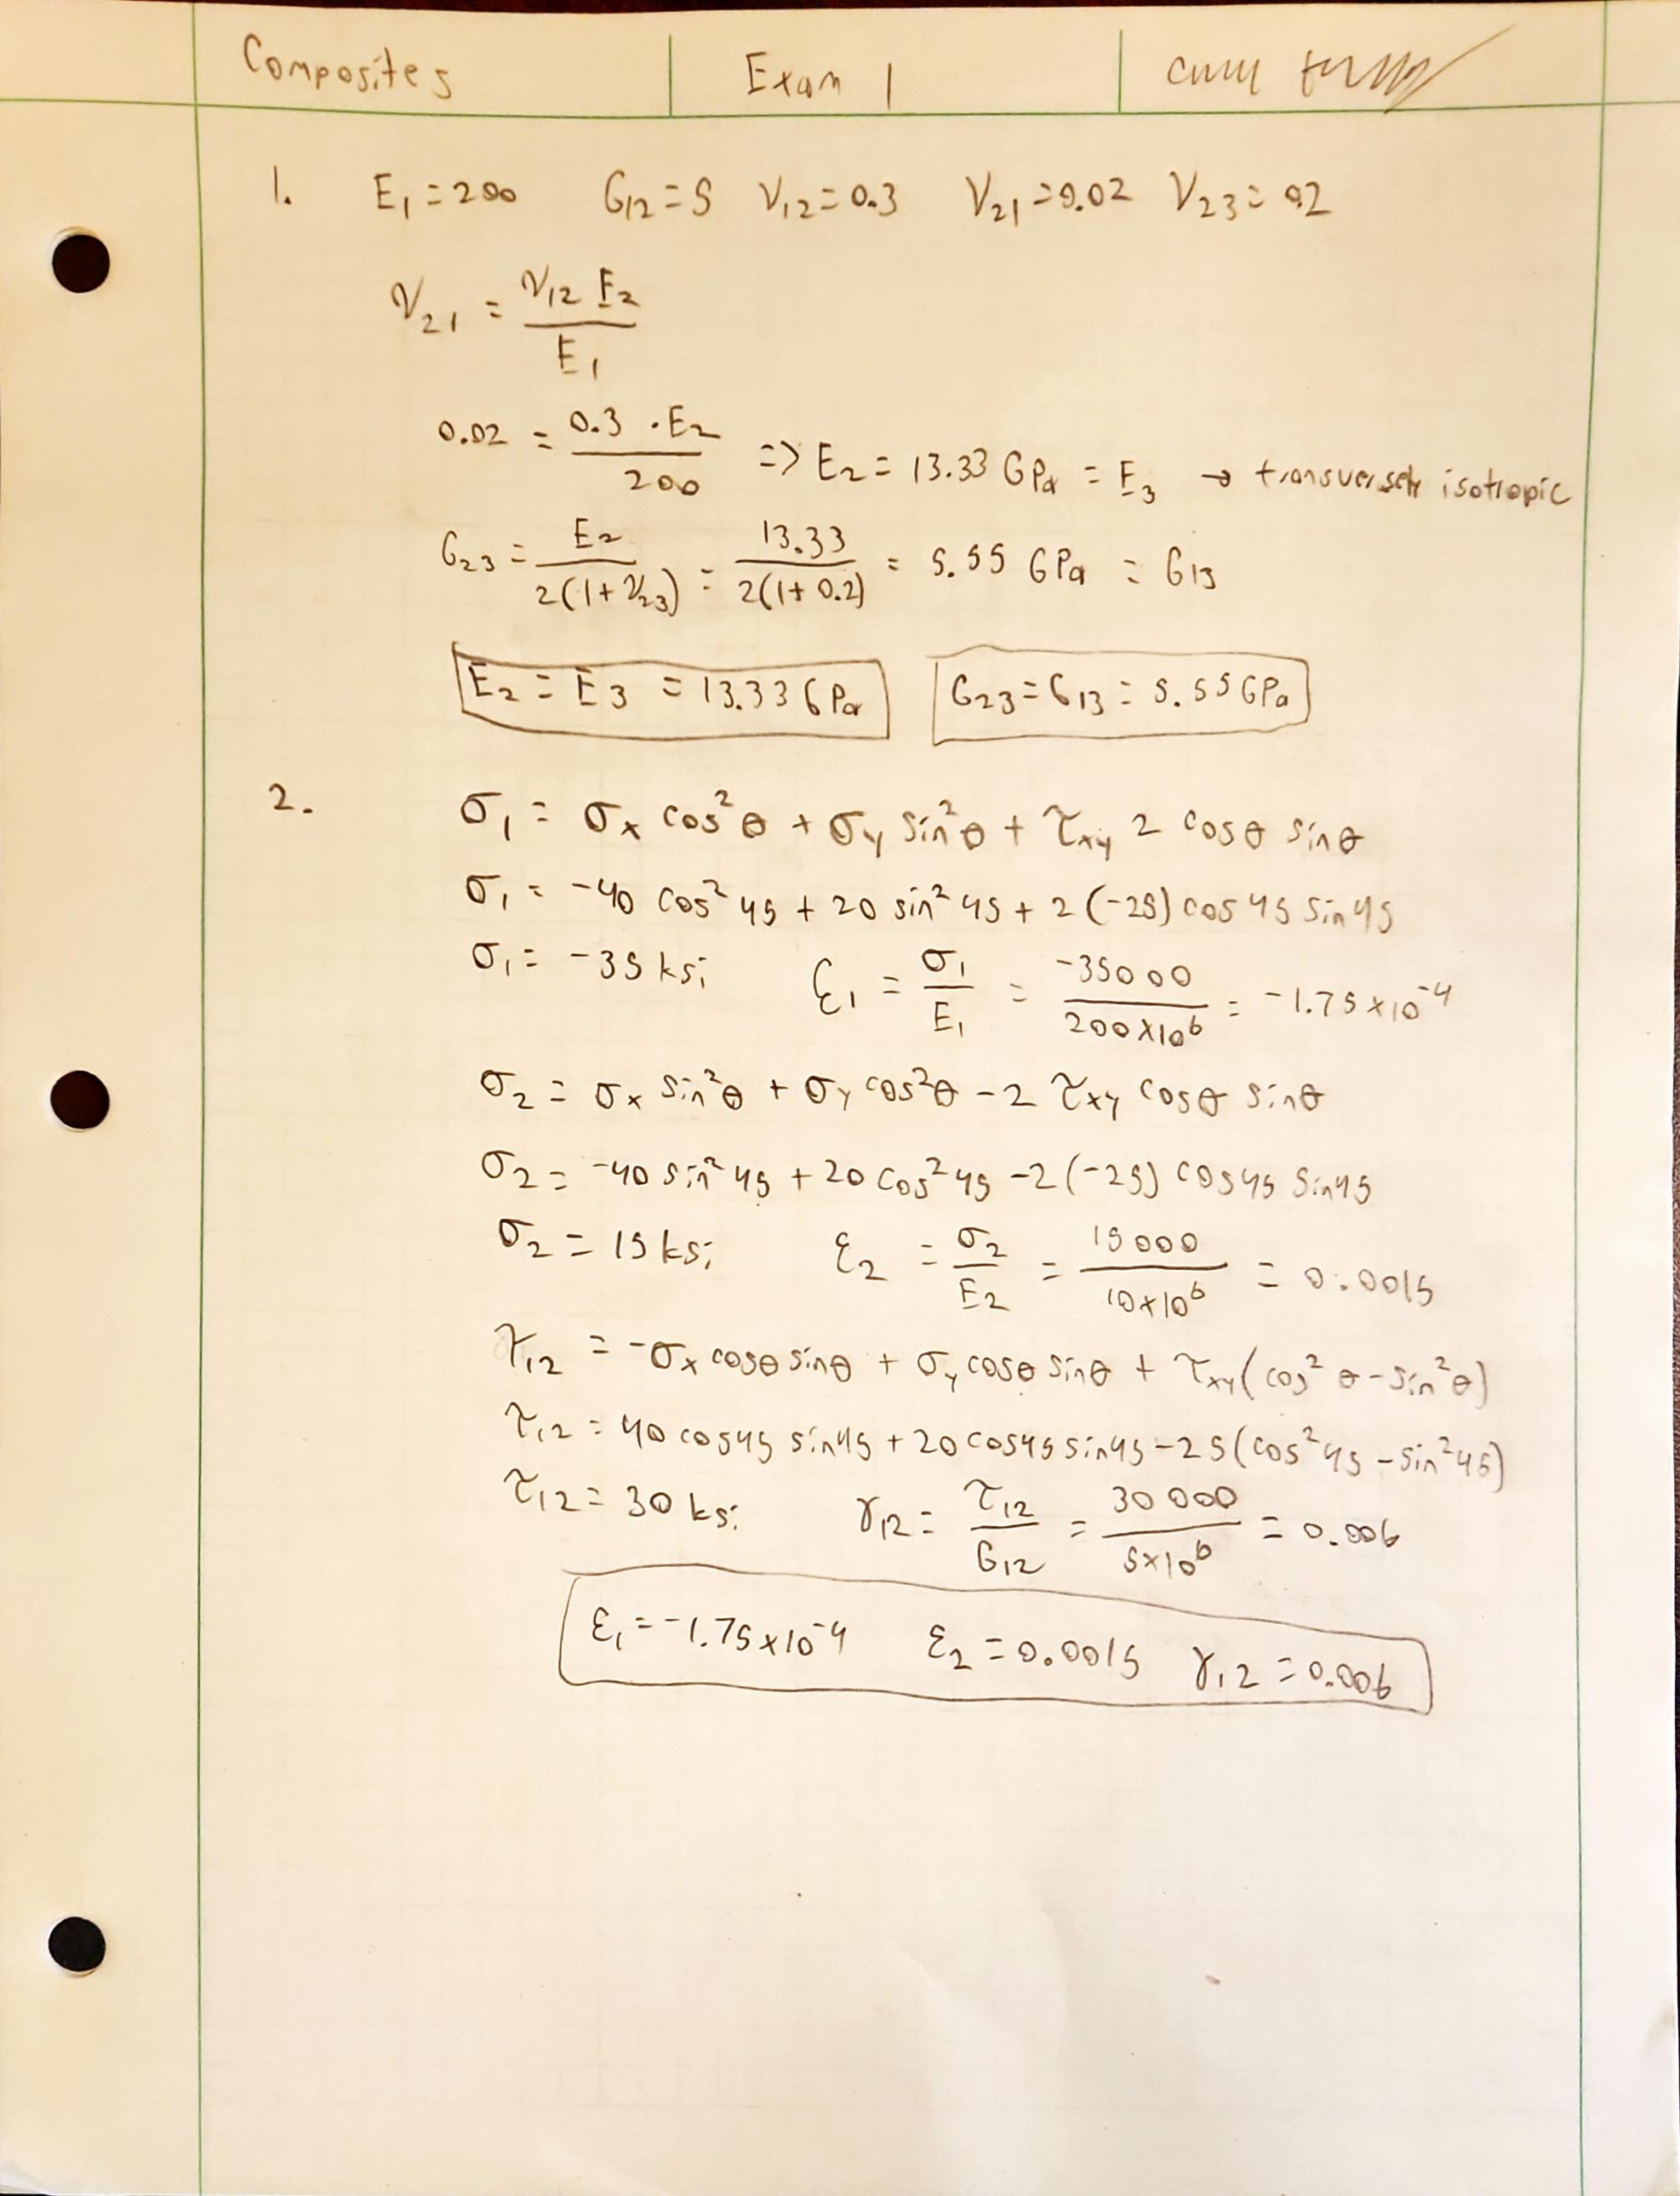 Composites Exam 1
1. E₁ = 200 G₁₂ = 5 ν₁₂ = 0.3 ν₂₁ = 0.02 ν₂₃ = 0.2
ν₂₁ = ν₁₂ E₂ / E₁
0.02 = 0.3 · E₂ / 200 => E₂ = 13.33 GPa = E₃ → transversely isotropic
G₂₃ = E₂ / 2(1 + ν₂₃) = 13.33 / 2(1 + 0.2) = 5.55 GPa = G₁₃
E₂ = E₃ = 13.33 GPa G₂₃ = G₁₃ = 5.55 GPa
2. σ₁ = σx cos²θ + σy sin²θ + τxy 2 cosθ sinθ
σ₁ = -40 cos²45 + 20 sin²45 + 2(-25) cos45 sin45
σ₁ = -35 ksi ε₁ = σ₁ / E₁ = -35000 / 200×10⁶ = -1.75×10⁻⁴
σ₂ = σx sin²θ + σy cos²θ - 2 τxy cosθ sinθ
σ₂ = -40 sin²45 + 20 cos²45 - 2(-25) cos45 sin45
σ₂ = 15 ksi ε₂ = σ₂ / E₂ = 15000 / 10×10⁶ = 0.0015
τ₁₂ = -σx cosθ sinθ + σy cosθ sinθ + τxy(cos²θ - sin²θ)
τ₁₂ = 40 cos45 sin45 + 20 cos45 sin45 - 25(cos²45 - sin²45)
τ₁₂ = 30 ksi γ₁₂ = τ₁₂ / G₁₂ = 30000 / 5×10⁶ = 0.006
ε₁ = -1.75×10⁻⁴ ε₂ = 0.0015 γ₁₂ = 0.006